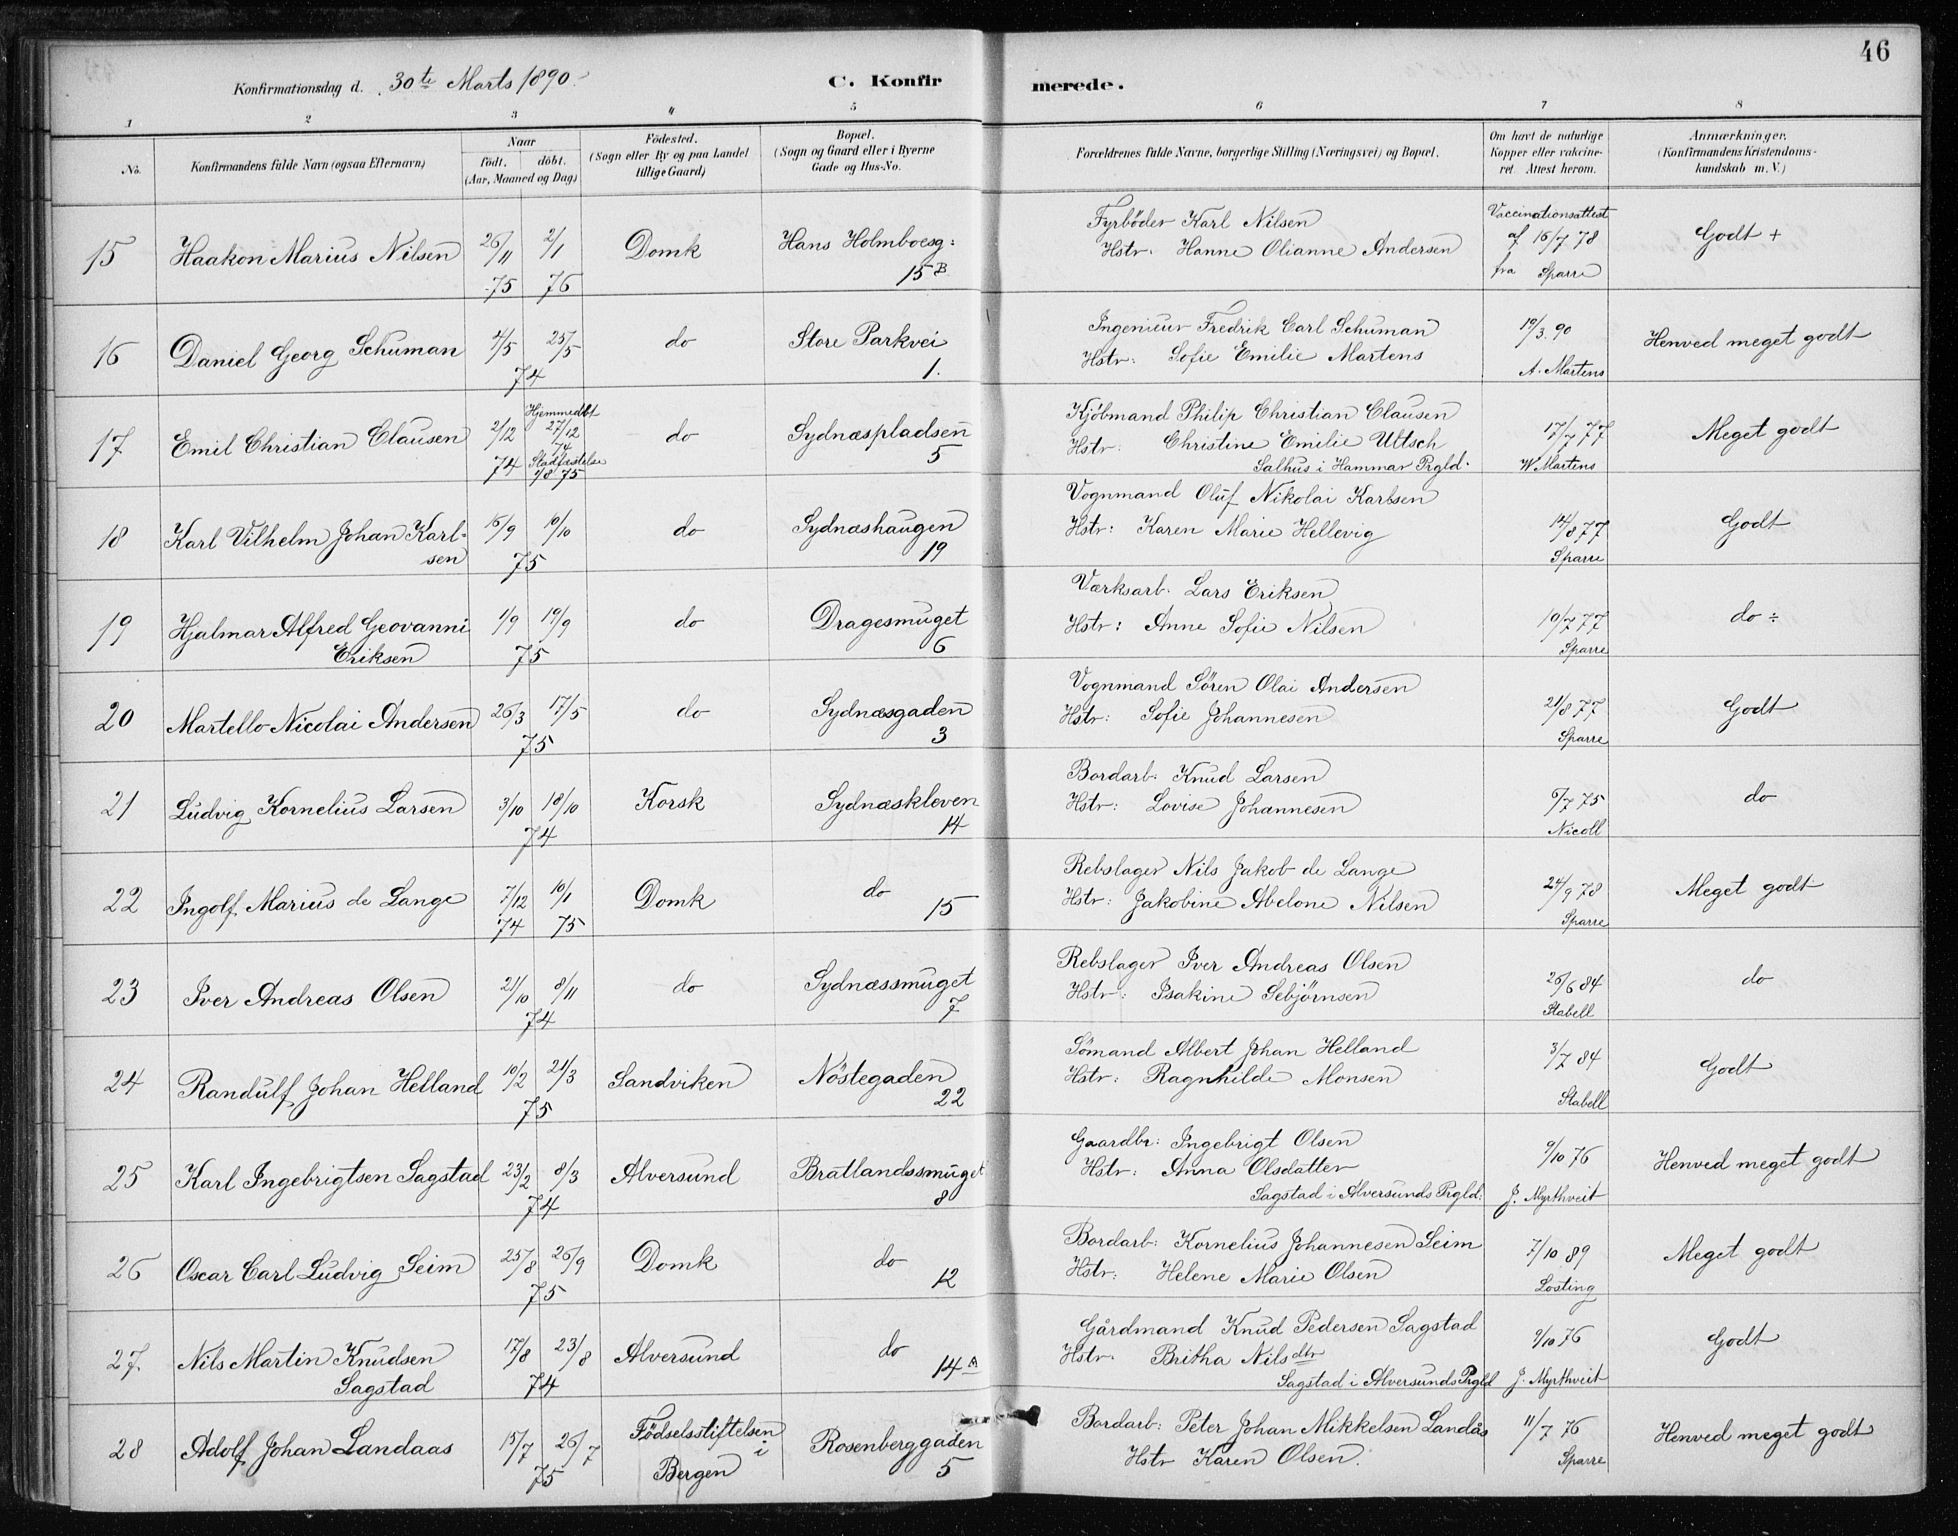 46
Konfirmationsdag d. 30te Marts 1890.
C. Konfir merede.
1 2 3 4 5 6 7 8
No.
Konfirmandens fulde Navn (ogsaa Efternavn)
Naar
födt. döbt.
(Aar, Maaned og Dag)
Födested.
(Sogn eller By og paa Landet
tillige Gaard)
Bopæl.
(Sogn og Gaard eller i Byerne
Gade og Hus-No.
Forældrenes fulde Navne, borgerlige Stilling (Næringsvei) og Bopæl.
Om havt de naturlige
Kopper eller vakcine-
ret Attest herom.
Anmærkninger.
(Konfirmandens Kristendoms-
kundskab m. V.)
15 Haakon Marius Nilsen 26/11 75 2/1 76 Domk Hans Holmboesg: 15 B
Fyrböder Karl Nilsen
Hstr. Hanne Olianne Andersen
Vaccinationsattest
af 16/7 78
fra Sparre
Godt +
16 Daniel Georg Schuman 4/5 25/5 74 do Store Parkvei 1.
Ingenieur Fredrik Carl Schuman
Hstr: Sofie Emilie Martens
19/3. 90
A. Martens
Henved meget godt
17 Emil Christian Clausen 2/12 74
Hjemmedöbt
27/12
74
Stadfæstelse
1/8 75
do Sydnæspladsen 5
Kjöbmand Philip Christian Clausen
Hstr. Christine Emilie Ultsch
Salhus i Hammar Prgld.
17/7 77
W Martens
Meget godt
18 Karl Vilhelm Johan Karl-
sen
15/9 10/10 75 do Sydnæshaugen 19
Vognmand Oluf Nikolai Karlsen
Hstr: Karen Marie Hellevig
14/8 77
Sparre
Godt
19 Hjalmar Alfred Geovanni
Eriksen
1/9 19/9 75 do Dragesmuget 6
Værksarb. Lars Eriksen
Hstr: Anne Sofie Nilsen
10/7 77
Sparre
do ÷
20 Martello Nicolai Andersen 26/3 17/5 75 do Sydnæsgaden 3
Vognmand Sören Olai Andersen
Hstr: Sofie Johannesen
21/8 77
Sparre
Godt
21 Ludvig Kornelius Larsen 3/10 18/10 74 Korsk Sydnæskleven 14
Bordarb. Knud Larsen
Hstr: Lovise Johannesen
6/7 75
Nicoll
do
22 Ingolf Marius de Lange 7/12 74 10/1 75 Domk do 15
Rebslager Nils Jakob de Lange
Hstr: Jakobine Abelone Nilsen
24/9 78
Sparre
Meget godt
23 Iver Andreas Olsen 21/10 8/11 74 do Sydnæssmuget 7
Rebslager Iver Andreas Olsen
Hstr: Isakine Sebjørnsen
26/6 84
Stabell
do
24 Randulf Johan Helland 10/2 21/3 75 Sandviken Nöstegaden 22
Sömand Albert Johan Helland
Hstr: Ragnhilde Monsen
3/7 84
Stabell
Godt
25 Karl Ingebrigtsen Sagstad 23/2 8/3 74 Alversund Bratlandssmuget 8
Gaardbr: Ingebrigt Olsen
Hstr: Anna Olsdatter
Sagstad i Alversunds Prgld:
9/10 76
J. Myrthveit
Henved meget godt
26 Oscar Carl Ludvig Seim 25/8 26/9 75 Domk do 12
Bordarb: Kornelius Johannesen Seim
Hstr: Helene Marie Olsen
7/10 89
Losting
Meget godt
27. Nils Martin Knudsen
Sagstad
17/8 23/8 74 Alversund do 14 A
Gårdmand Knud Pedersen Sagstad
Hstr. Britha Nilsdtr
Sagstad i Alversunds Prgld
9/10 76
J. Myrthveit
Godt
28 Adolf Johan Landaas 15/7 26/7 75
Födselsstiftelsen
i
Bergen
Rosenberggaden 5
Bordarb: Peter Johan Mikkelsen Landås
Hstr Karen Olsen.
11/7 76
Sparre
Henved meget godt